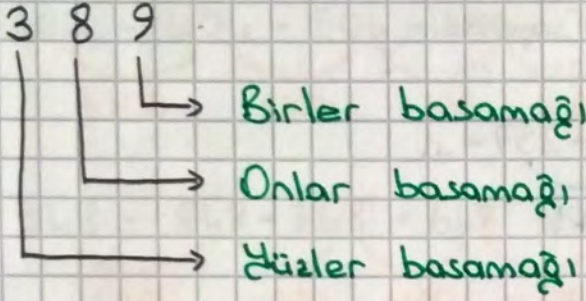 3 8 9
Birler basamağı
Onlar basamağı
Yüzler basamağı